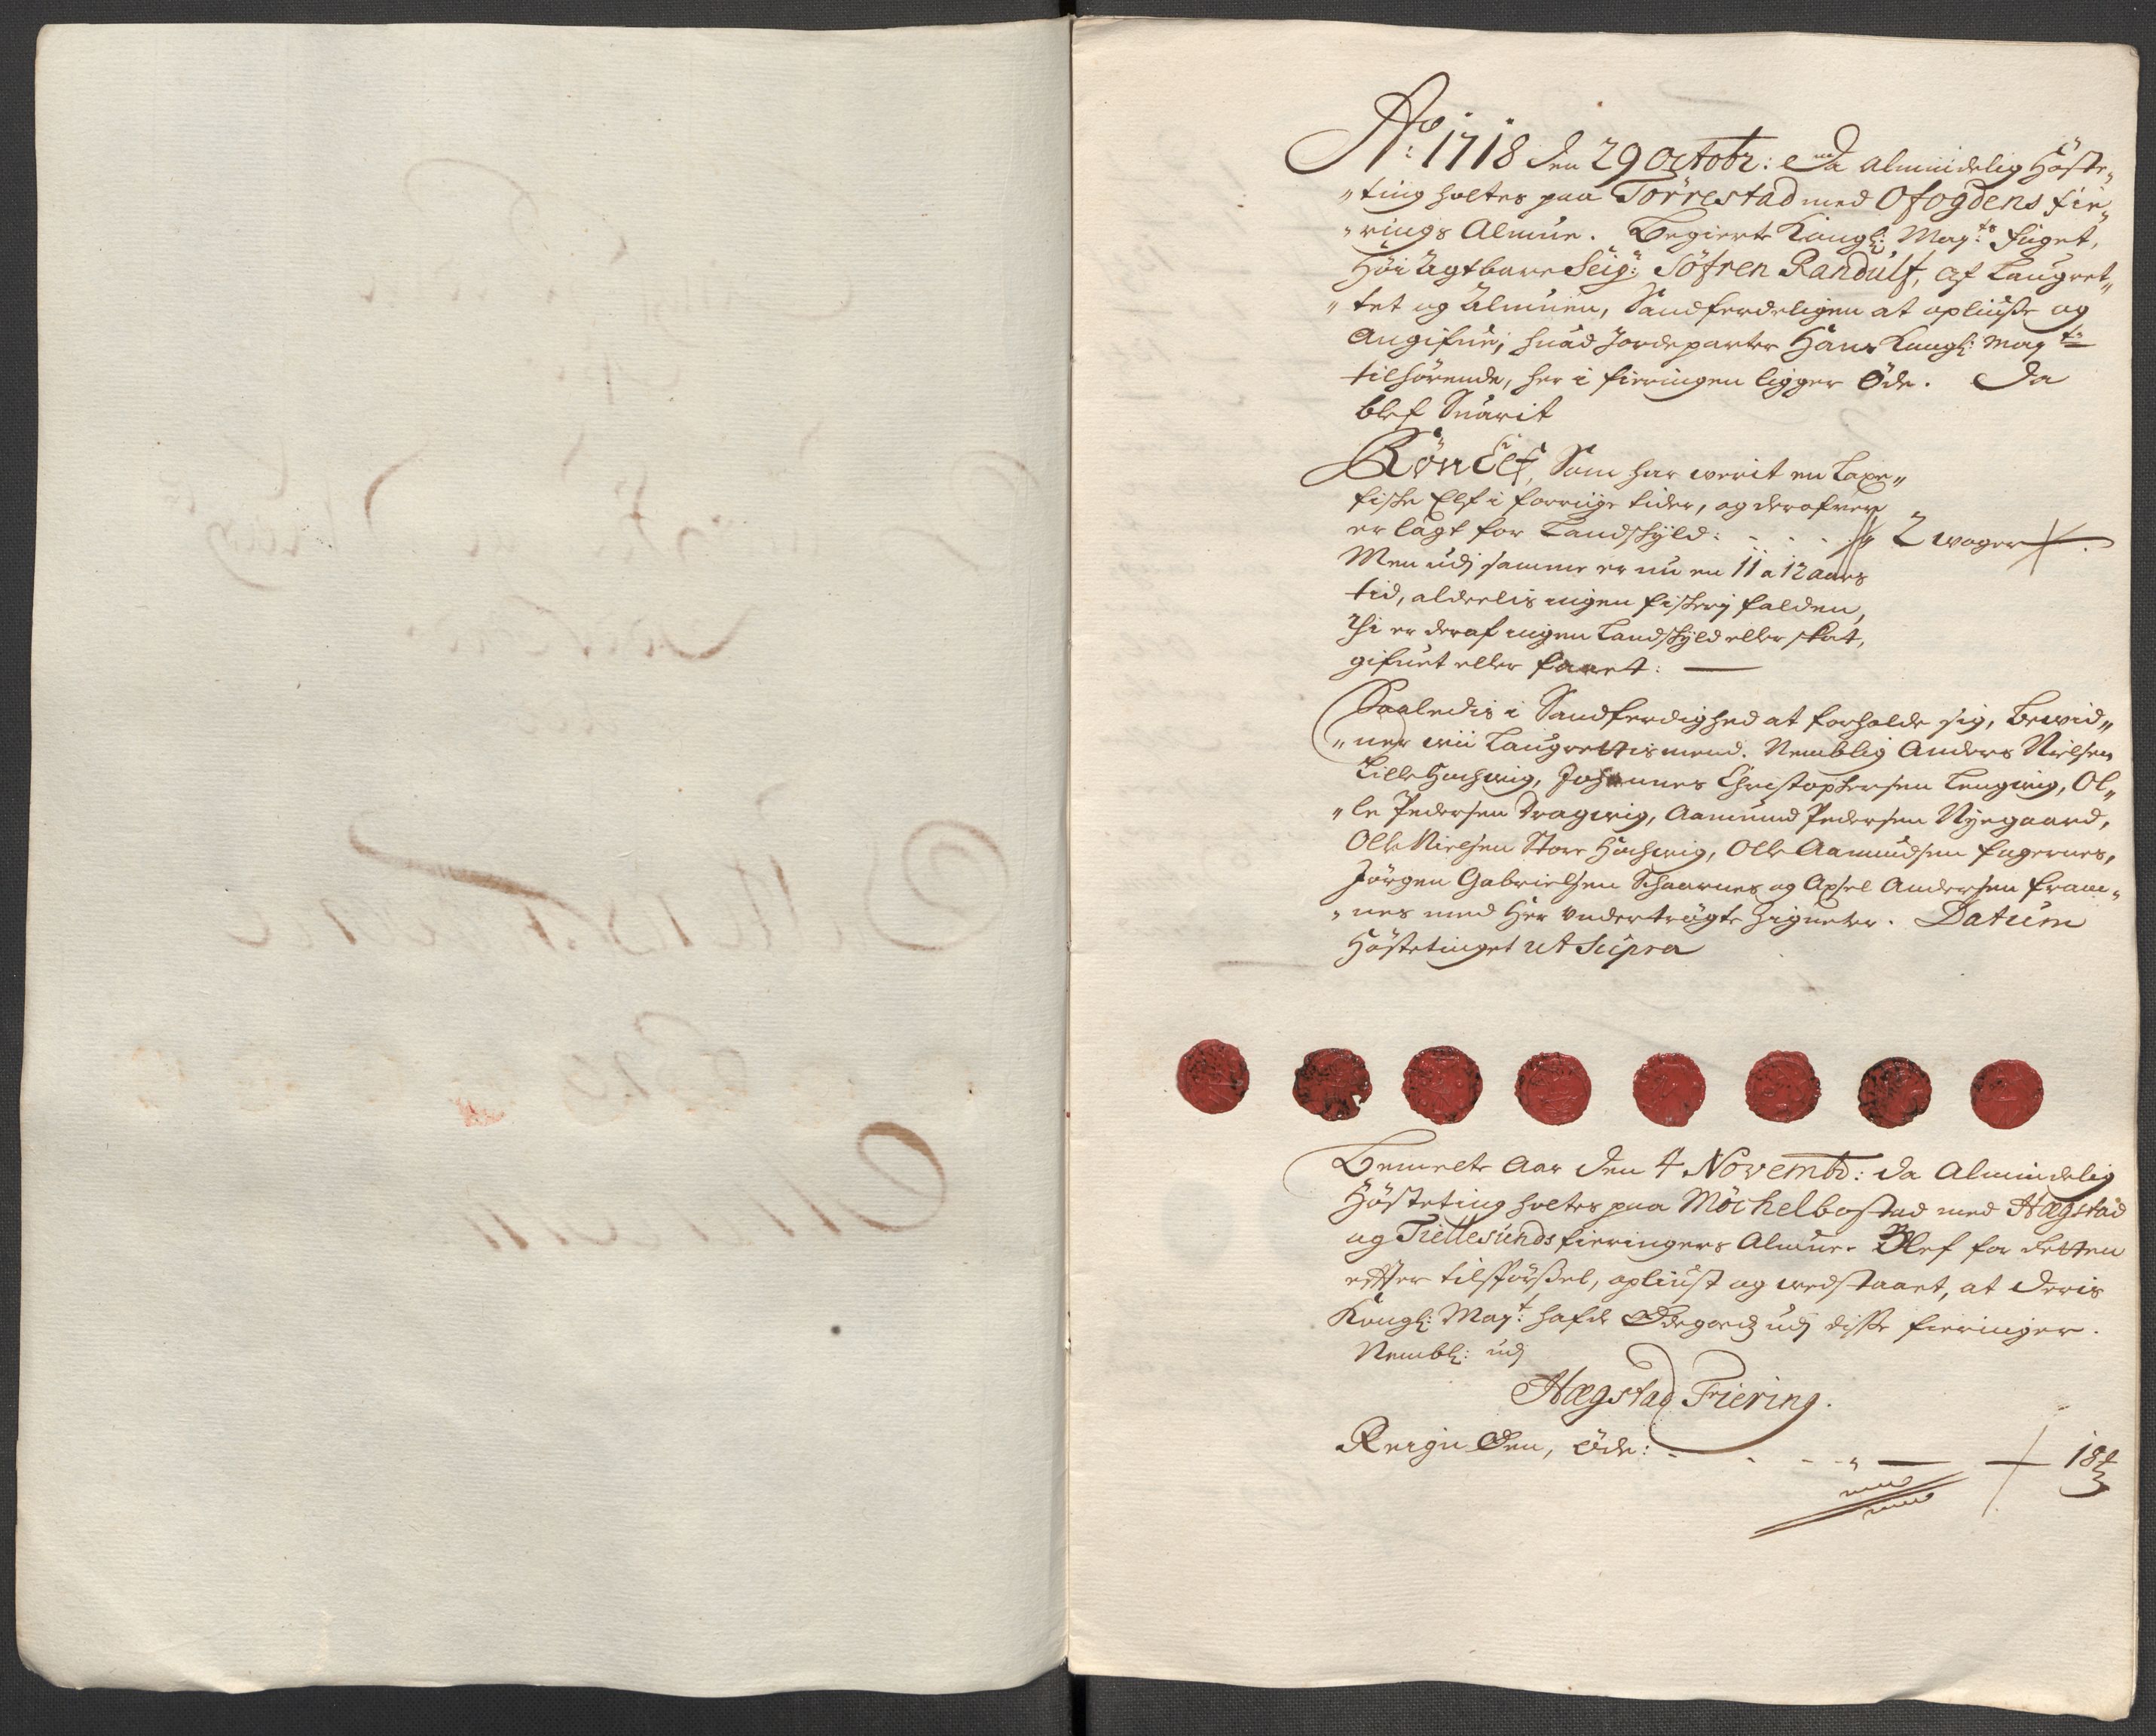 Ao: 1718 den 29 Octobr: Da Almindelig Höste„
„ting holtes paa Törrestad med Ofogdens fie„
„rings Almue. Begierte Kongl: Mayts: fuget,
Höi Ügtbare Seigr: Söfren Randulf, af Laugret„
„tet og Almuen, Sandferdeligen at opliuse og
Angifue, huad Jordeparter Hans Kongl: Mayts:
tilhörende, her i fieringen ligger Öde. Da
blef Suarit
Rön Elf, Som har werit en Laxe„
fiske Elf i forrige tider, og derafver
er lagt for Landskyld: - - - „ 2 woger
Men udj samme er nu en 11 a 12 aars
tid, alderlis ingen fiskerj falden,
Thi er deraf ingen Landskyld eller skat,
gifuet eller faaet.
Saaledis i Sandferdighed at forholde sig, Bewid„
„ner wii Laugrettismend. Nemblig Anders Nielsen
Lille Hachwig, Johannes Christophersen Lengwig, Ol„
„le Pedersen Dragwig, Aamund Pedersen Nyegaard,
Olle Nielsen Store Hachwig, Olle Aamundsen fagernes,
Jörgen Gabrielsen Schaarnes og Axsel Andersen fram„
„nes med Her undertrögte Zigneter. Datum
Höstetinget ut Supra
Bemelte Aar den 4 Novembr: da Almindelig
Hösteting holtes paa Möchelbostad med Hægstad
og Tiellesunds fieringers Almue. Blef for Retten
effter tilspörssel, opliust og wedstaaet, at Deris
Kongl: Mayt: hafde Ödegord udj disse fieringer.
Nembl: udj
Hægstad Fiering.
Reign Öen, öde: - - - „ — 18